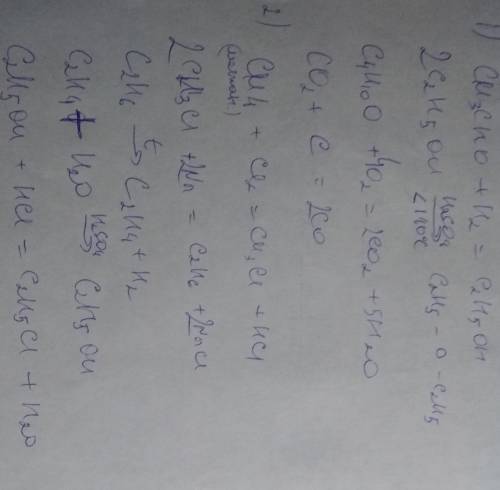 1) CH3CHO + H2 = C2H5OH
2C2H5OH H2SO4 → <140°C C2H5 - O - C2H5
C4H10O + 4O2 = 2CO2 + 5H2O
CO2 + C = 2CO
2)
CH4 + Cl2 = CH3Cl + HCl
(метан)
2CH3Cl + 2Na = C2H6 + 2NaCl
C2H6 t→ C2H4 + H2
C2H4 + H2O H2SO4→ C2H5OH
C2H5OH + HCl = C2H5Cl + H2O